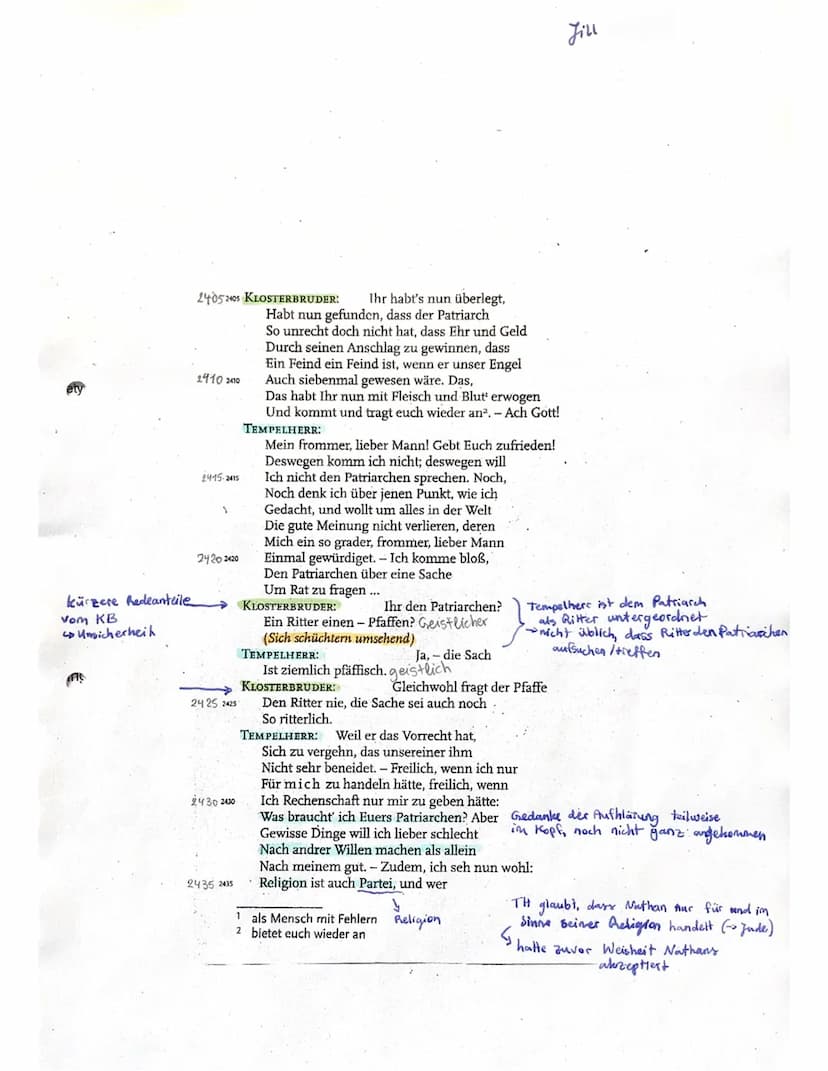 Jill
2405 2405 KLOSTERBRUDER: Ihr habt's nun überlegt,
Habt nun gefunden, dass der Patriarch
So unrecht doch nicht hat, dass Ehr und Geld
Durch seinen Anschlag zu gewinnen, dass
Ein Feind ein Feind ist, wenn er unser Engel
2410 2410 Auch siebenmal gewesen wäre. Das,
Das habt Ihr nun mit Fleisch und Blut¹ erwogen
Und kommt und tragt euch wieder an². – Ach Gott!
TEMPELHERR:
Mein frommer, lieber Mann! Gebt Euch zufrieden!
Deswegen komm ich nicht; deswegen will
2415 2415 Ich nicht den Patriarchen sprechen. Noch,
Noch denk ich über jenen Punkt, wie ich
Gedacht, und wollt um alles in der Welt
Die gute Meinung nicht verlieren, deren
Mich ein so grader, frommer, lieber Mann
2420 2420 Einmal gewürdiget. – Ich komme bloß,
Den Patriarchen über eine Sache
Um Rat zu fragen ...
kürzere Redeanteile
vom KB
↳ Unsicherheit
KLOSTERBRUDER: Ihr den Patriarchen?
Ein Ritter einen – Pfaffen? Geistlicher
(Sich schüchtern umsehend)
Tempelherr ist dem Patriarch
als Ritter untergeordnet
→ nicht üblich, dass Ritter den Patriarchen
aufsuchen/treffen
TEMPELHERR: Ja, – die Sach
Ist ziemlich pfäffisch. geistlich
KLOSTERBRUDER: Gleichwohl fragt der Pfaffe
2425 2425 Den Ritter nie, die Sache sei auch noch
So ritterlich.
TEMPELHERR: Weil er das Vorrecht hat,
Sich zu vergehn, das unsereiner ihm
Nicht sehr beneidet. – Freilich, wenn ich nur
Für mich zu handeln hätte, freilich, wenn
2430 2430 Ich Rechenschaft nur mir zu geben hätte:
Was braucht' ich Euers Patriarchen? Aber
Gewisse Dinge will ich lieber schlecht
Gedanke der Aufklärung teilweise
im Kopf, noch nicht ganz angekommen
Nach andrer Willen machen als allein
Nach meinem gut. – Zudem, ich seh nun wohl:
2435 2435 Religion ist auch Partei, und wer
Religion
TH glaubt, dass Nathan nur für und im
Sinne seiner Religion handelt (→ Jude)
↳ hatte zuvor Weisheit Nathans
akzeptiert
¹ als Mensch mit Fehlern
² bietet euch wieder an